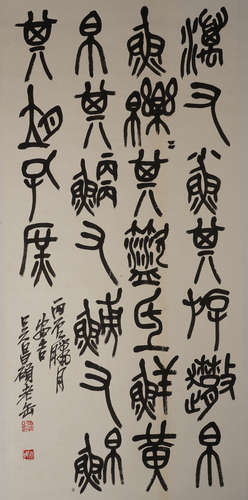 澫又小魚其斿帛
魚皪其氐鮮黃
帛其鯾又䱉又鮊
其孔庶
丙辰臘月
安吉
吳昌碩老缶